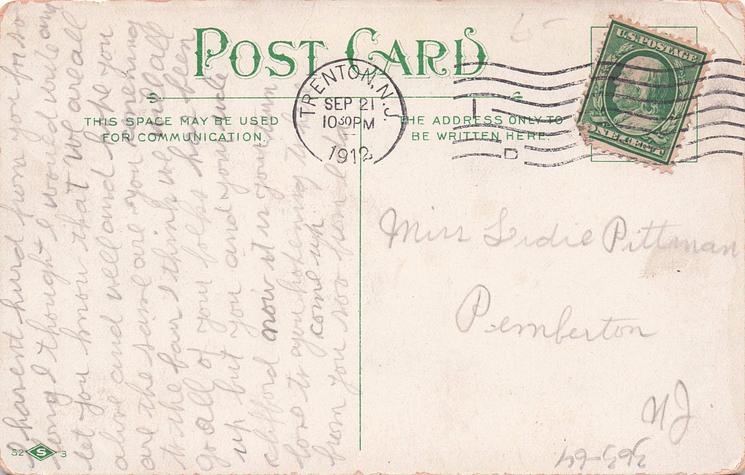 POST CARD
THIS SPACE MAY BE USED
FOR COMMUNICATION.
THE ADDRESS ONLY TO
BE WRITTEN HERE
TRENTON, N.J.
SEP 21
10 30 PM
1912
U.S. POSTAGE
ONE CENT
I havent hurd from you for so
long I thought I would write and
let you know that we are all
alive and well and hope you
are the same are you
to the fair I think we will all
go all of your folks have been
up but you and
clifford now it is your turn
love to you
come up
from you soo
Miss Lidie Pittman
Pemberton
NJ
52 S 3